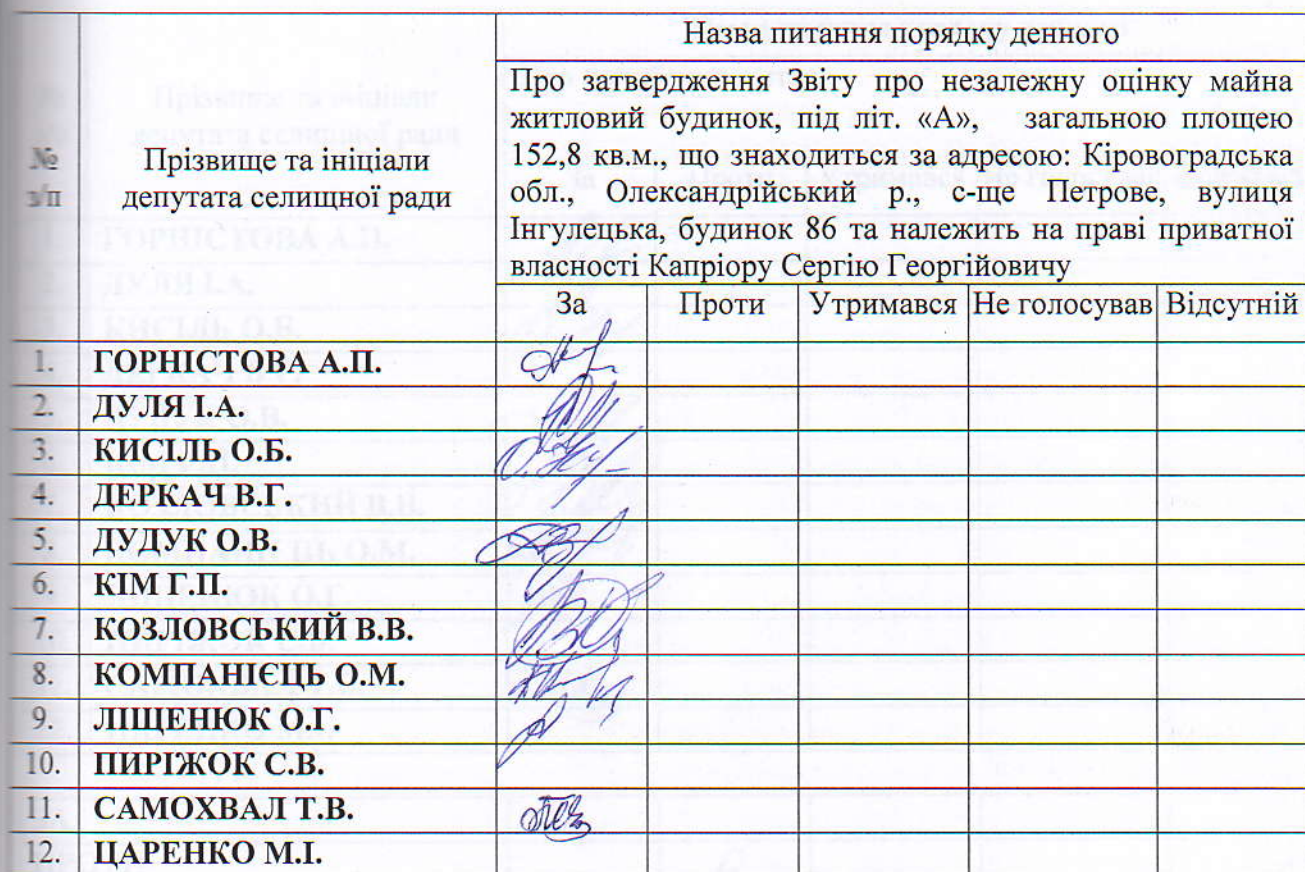 Назва питання порядку денного
№
з/п
Прізвище та ініціали
депутата селищної ради
Про затвердження Звіту про незалежну оцінку майна
житловий будинок, під літ. «А», загальною площею
152,8 кв.м., що знаходиться за адресою: Кіровоградська
обл., Олександрійський р., с-ще Петрове, вулиця
Інгулецька, будинок 86 та належить на праві приватної
власності Капріору Сергію Георгійовичу
За Проти Утримався Не голосував Відсутній
1. ГОРНІСТОВА А.П.
2. ДУЛЯ І.А.
3. КИСІЛЬ О.Б.
4. ДЕРКАЧ В.Г.
5. ДУДУК О.В.
6. КІМ Г.П.
7. КОЗЛОВСЬКИЙ В.В.
8. КОМПАНІЄЦЬ О.М.
9. ЛІЩЕНЮК О.Г.
10. ПИРІЖОК С.В.
11. САМОХВАЛ Т.В.
12. ЦАРЕНКО М.І.